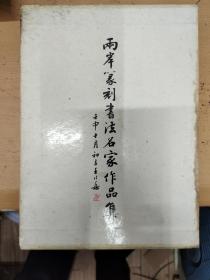 兩岸篆刻書法名家作品集
壬申十月